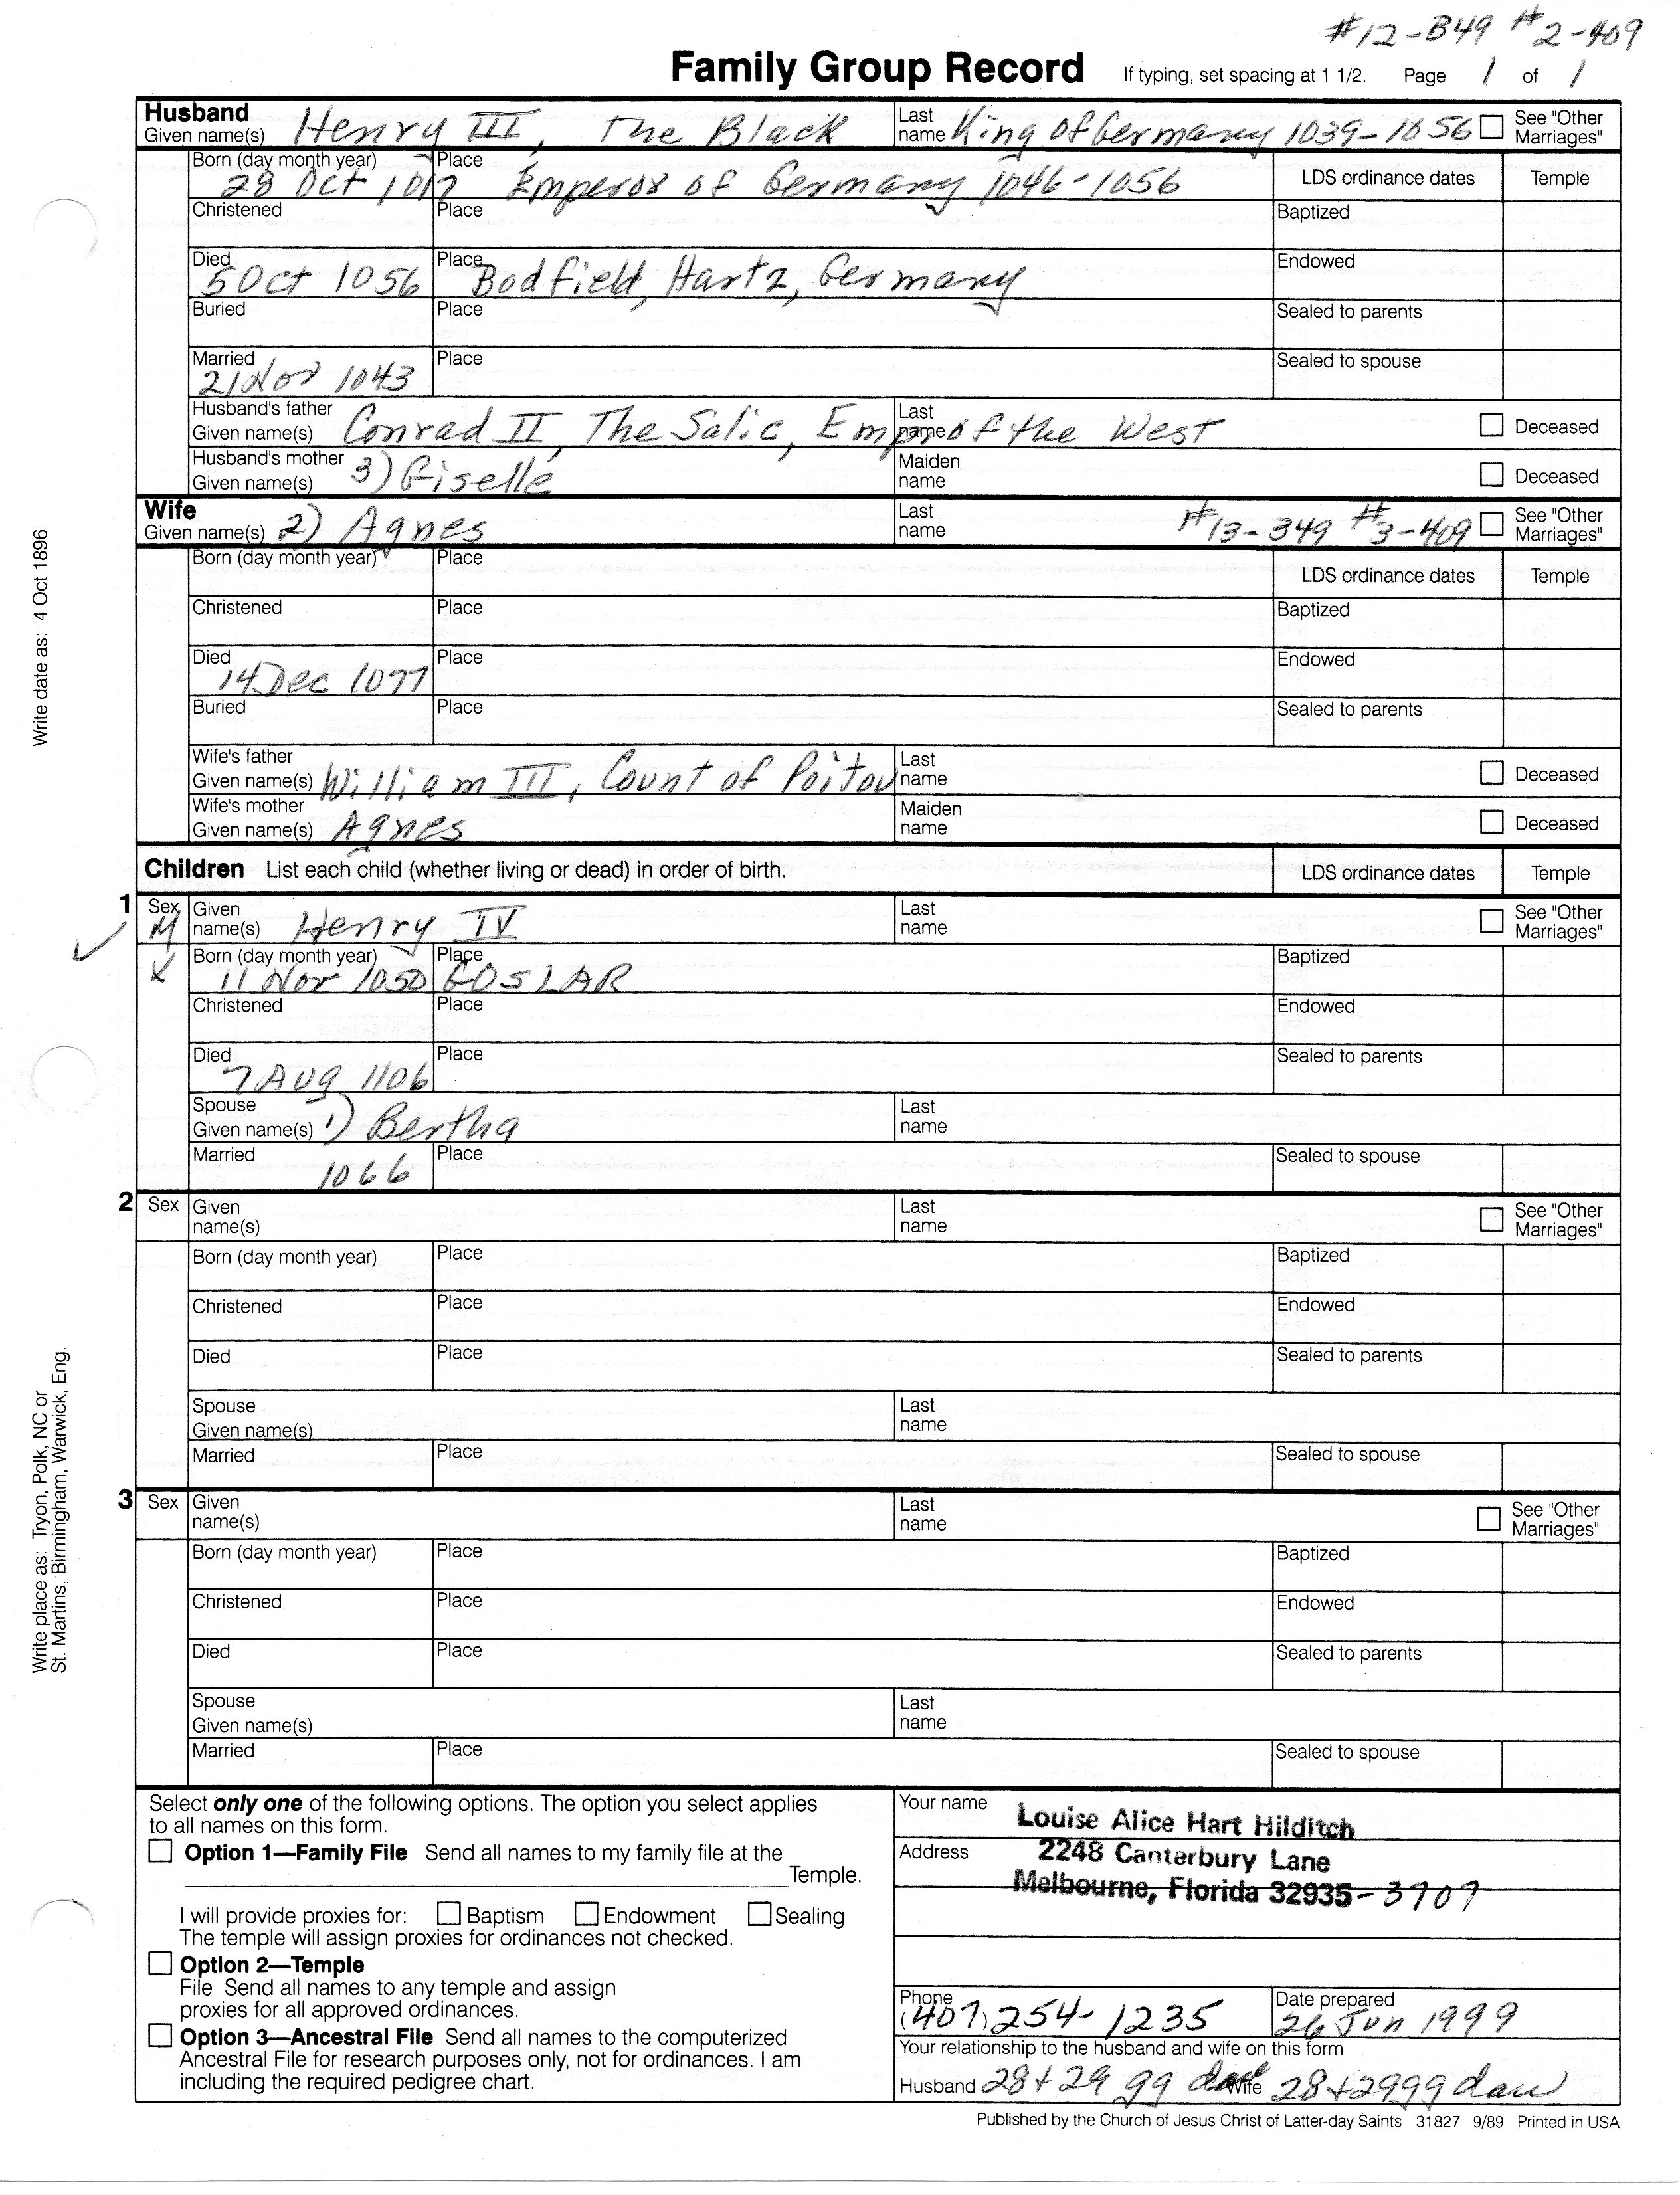 #12-B49 #2-409
Family Group Record If typing, set spacing at 1 1/2. Page 1 of 1
Husband
Given name(s) Henry III, The Black Last name King of Germany 1039-1056 See "Other Marriages"
Born (day month year) 28 Oct 1017 Place Emperor of Germany 1046-1056 LDS ordinance dates Temple
Christened Place Baptized
Died 5 Oct 1056 Place Bodfield, Hartz, Germany Endowed
Buried Place Sealed to parents
Married 21 Nov 1043 Place Sealed to spouse
Husband's father Given name(s) Conrad II, The Salic, Emp of the West Last name Deceased
Husband's mother Given name(s) 3) Giselle Maiden name Deceased
Wife
Given name(s) 2) Agnes Last name #13-349 #3-409 See "Other Marriages"
Born (day month year) Place LDS ordinance dates Temple
Christened Place Baptized
Died 14 Dec 1077 Place Endowed
Buried Place Sealed to parents
Wife's father Given name(s) William III, Count of Poitou Last name Deceased
Wife's mother Given name(s) Agnes Maiden name Deceased
Children List each child (whether living or dead) in order of birth. LDS ordinance dates Temple
1 Sex M Given name(s) Henry IV Last name See "Other Marriages"
X Born (day month year) 11 Nov 1050 Place GOSLAR Baptized
Christened Place Endowed
Died 7 Aug 1106 Place Sealed to parents
Spouse Given name(s) 1) Bertha Last name
Married 1066 Place Sealed to spouse
2 Sex Given name(s) Last name See "Other Marriages"
Born (day month year) Place Baptized
Christened Place Endowed
Died Place Sealed to parents
Spouse Given name(s) Last name
Married Place Sealed to spouse
3 Sex Given name(s) Last name See "Other Marriages"
Born (day month year) Place Baptized
Christened Place Endowed
Died Place Sealed to parents
Spouse Given name(s) Last name
Married Place Sealed to spouse
Select only one of the following options. The option you select applies
to all names on this form.
Option 1—Family File Send all names to my family file at the
Temple.
I will provide proxies for: Baptism Endowment Sealing
The temple will assign proxies for ordinances not checked.
Option 2—Temple
File Send all names to any temple and assign
proxies for all approved ordinances.
Option 3—Ancestral File Send all names to the computerized
Ancestral File for research purposes only, not for ordinances. I am
including the required pedigree chart.
Your name Louise Alice Hart Hilditch
Address 2248 Canterbury Lane
Melbourne, Florida 32935-3707
Phone (407) 254-1235 Date prepared 26 Jun 1999
Your relationship to the husband and wife on this form
Husband 28+29 gg dau Wife 28+29 gg dau
Published by the Church of Jesus Christ of Latter-day Saints 31827 9/89 Printed in USA
Write date as: 4 Oct 1896
Write place as: Tryon, Polk, NC or
St. Martins, Birmingham, Warwick, Eng.